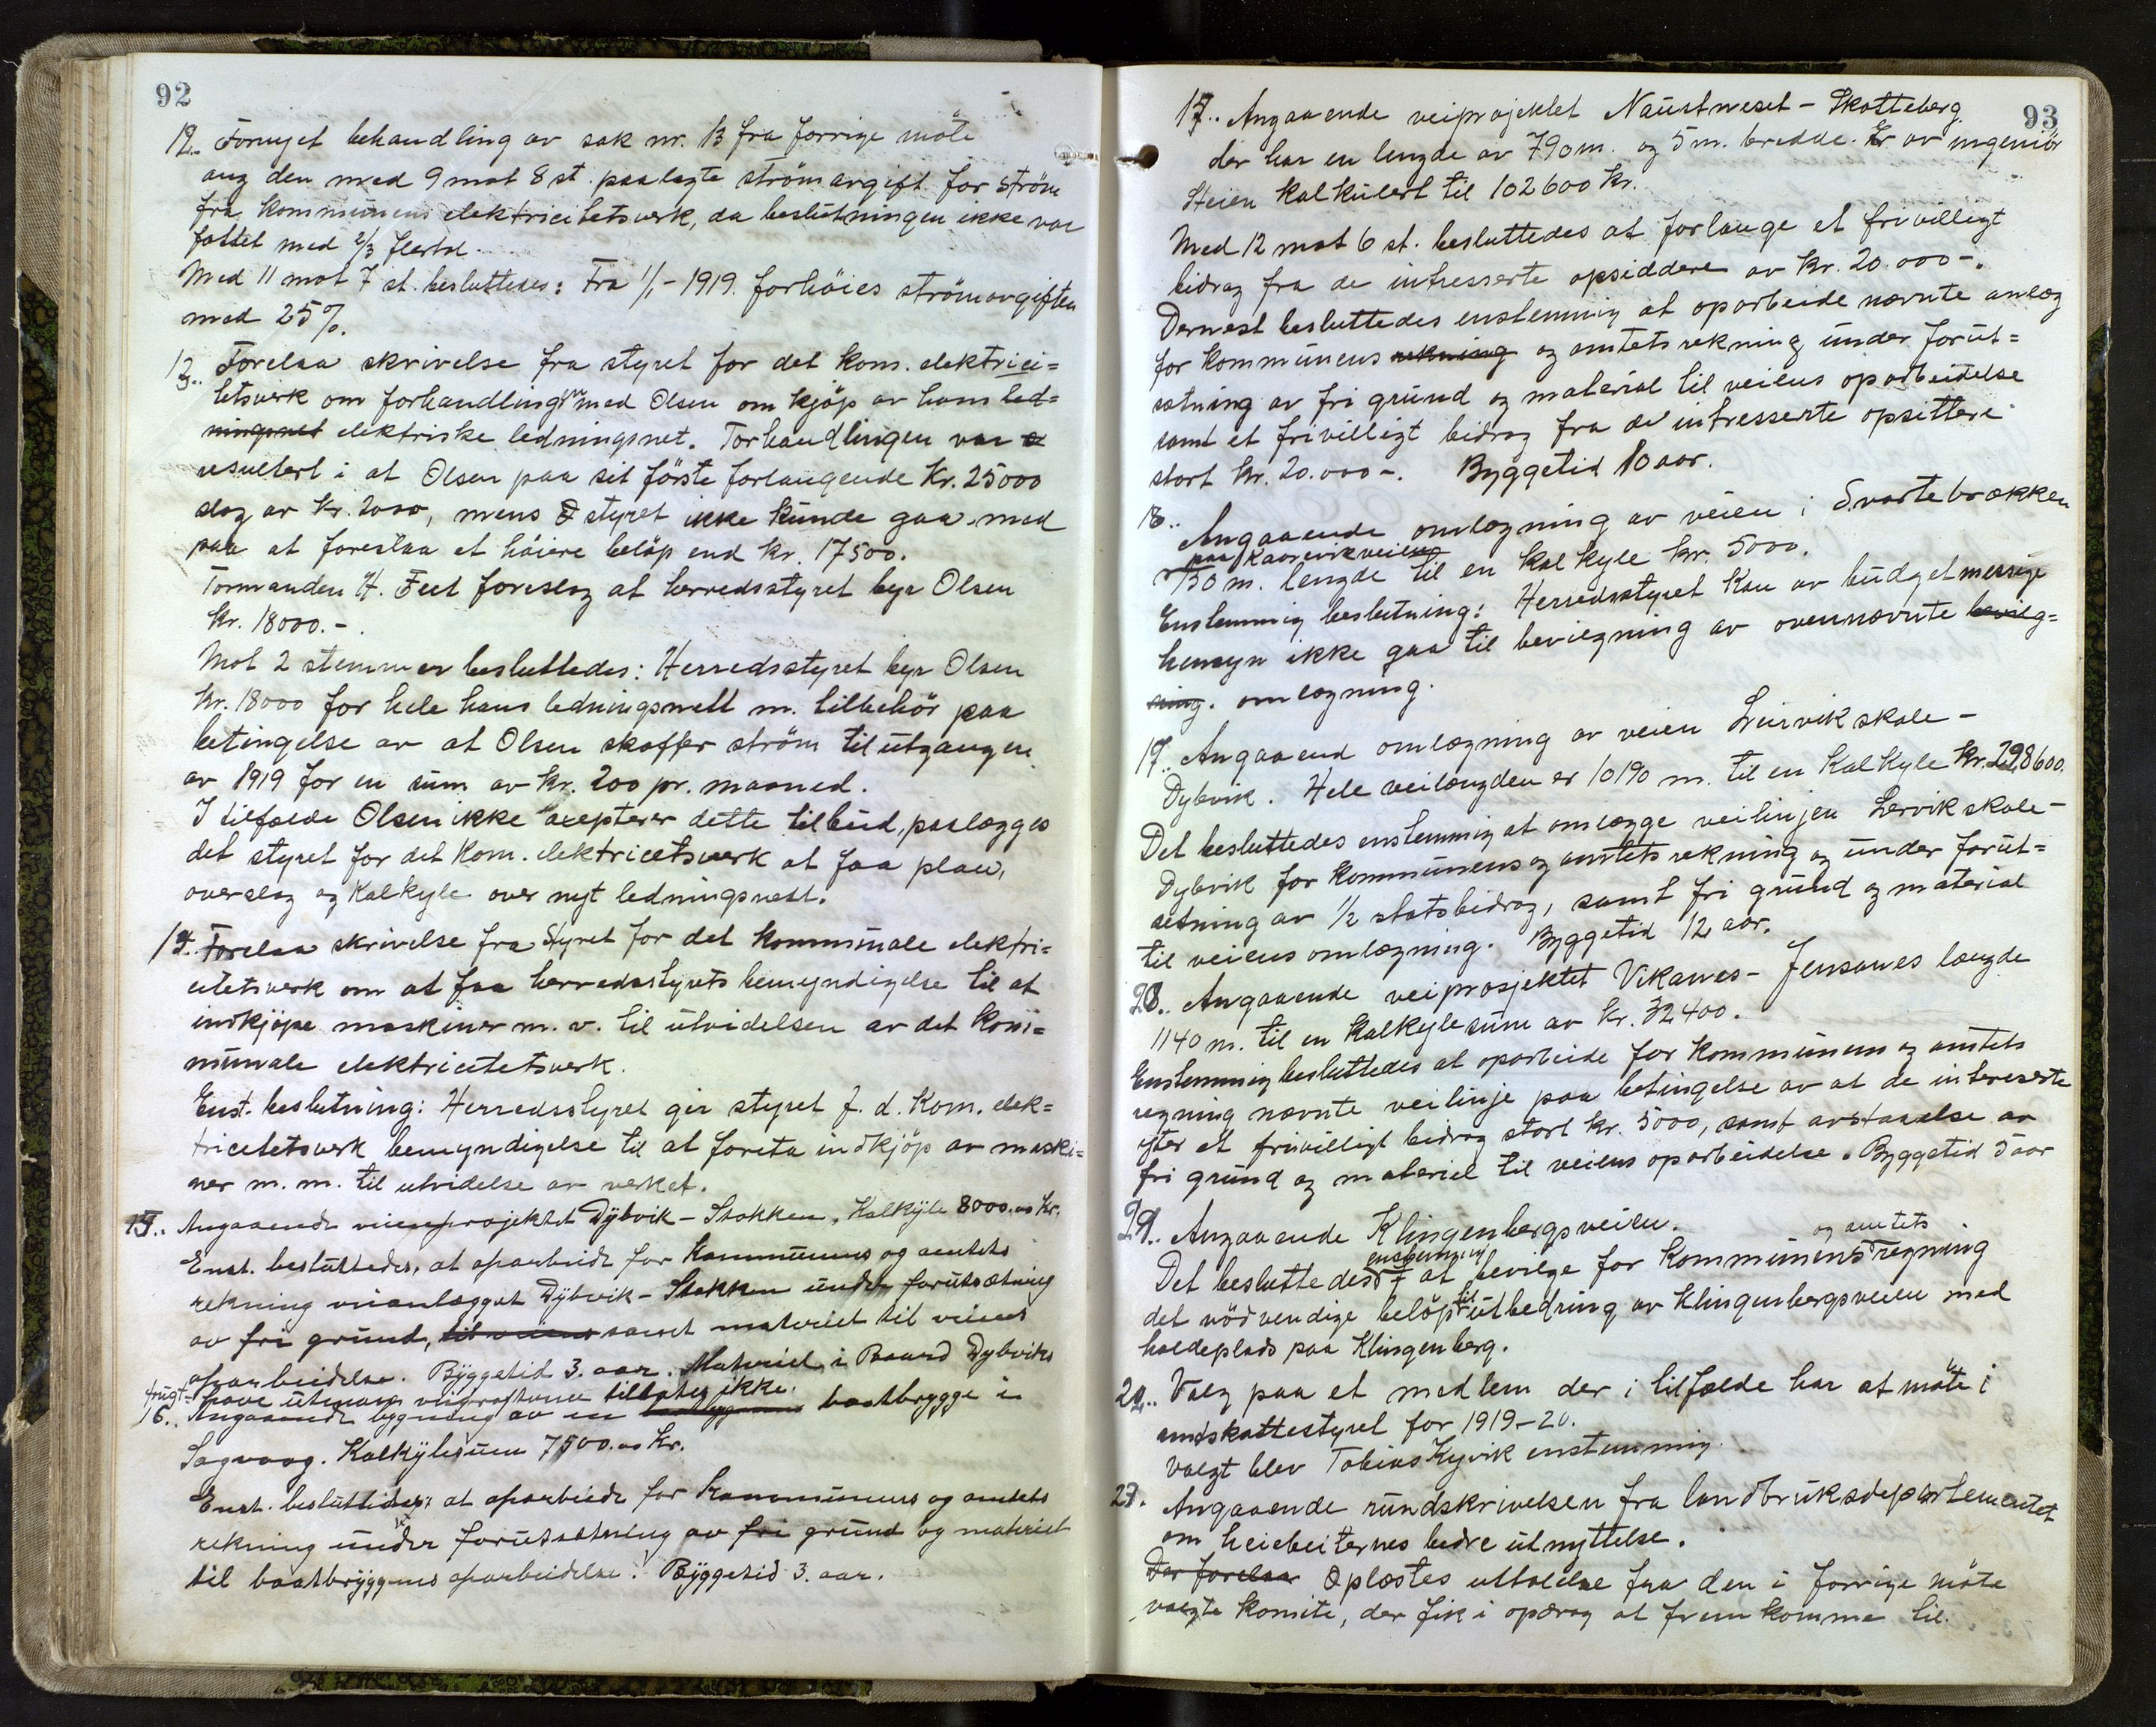 92
12. Fornyet behandling av sak nr. 13 fra forrige möte
ang den med 9 mot 8 st. paalagte strömavgift for ström
fra kommunens elektricitetsverk, da beslutningen ikke var
fattet med 2/3 flertal.
Med 11 mot 7 st. besluttedes: Fra 1/1-1919. forhöies strömavgiften
med 25%.
13. Forelaa skrivelse fra styret for det kom. elektrici=
tetsverk om forhandlingene med Olsen om kjöp av hans led=
ningsnet elektriske ledningsnet. Forhandlingen var
resultert i at Olsen paa sit förste forlangende Kr. 25000
slog av Kr. 2000, mens styret ikke kunde gaa med
paa at foreslaa et höiere belöp end kr. 17500.
Formanden H. Feet foreslog at herredsstyret byr Olsen
kr. 18000.-.
Mot 2 stemmer besluttedes: Herredsstyret byr Olsen
kr. 18000 for hele hans ledningsnett m. tilbehör paa
betingelse av at Olsen skaffer ström til utgangen
av 1919 for en sum av kr. 200 pr. maaned.
I tilfælde Olsen ikke axepterer dette tilbud, paalægges
det styret for det kom. elektricetsverk at faa plan,
overslag og kalkyle over nyt ledningsnett.
14. Forelaa skrivelse fra Styret for det kommunale elektri=
citetsverk om at faa herredsstyrets bemyndigelse til at
indkjöpe maskiner m. v. til utvidelsen av det kom=
munale elektricitetsverk.
Enst. beslutning: Herredsstyret gir styret f. d. kom. elek=
tricitetsverk bemyndigelse til at foreta indkjöp av maski=
ner m. m. til utvidelse av verket.
15. Angaaende veienprojektet Dybvik - Stokken, Kalkyle 8000.00 Kr.
Enst. besluttedes, at oparbeide for kommunens og amtets
rekning veianlægget Dybvik - Stokken under forutsætning
av fri grund, til veiens samt materiel til veiens
oparbeidelse. Byggetid 3. aar. Materiel i Baard Dybviks
frugt-have utenom veigrøftene tillates ikke.
16. Angaaende bygning av en baatbrygge i
Sagvaag. Kalkylesum 7500.00 Kr.
Enst. besluttedes: at oparbeide for kommunens og amtets
rekning under forutsætning av fri grund og materiel
til baatbryggens oparbeidelse. Byggetid 3. aar.
93
17. Angaaende veiprojektet Naustneset - Skotteberg
der har en lengde av 790 m. og 5 m. bredde. Er av ingeniör
Steien kalkulert til 102600 kr.
Med 12 mot 6 st. besluttedes at forlange et frivilligt
bidrag fra de intresserte opsiddere av kr. 20.000-.
Dernest besluttedes enstemmig at oparbeide nævnte anlæg
for kommunens rekning og amtets rekning under forut=
sætning av fri grund og material til veiens oparbeidelse
samt et frivilligt bidrag fra de intresserte opsittere
stort kr. 20.000-. Byggetid 10 aar.
18. Angaaende omlægning av veien i Svartebrækken
paa Kaarevikveien
150 m. lengde til en kalkyle kr. 5000.
Enstemmig beslutning: Herredsstyret kan av budgetmessige
hensyn ikke gaa til bevilgning av ovennævnte bevilg=
ning. omlægning.
19. Angaaend omlægning av veien Leirvik skole -
Dybvik. Hele veilængden er 10190 m. til en kalkyle kr. 298600.
Det besluttedes enstemmig at omlægge veilinjen Lervik skole -
Dybvik for kommunens og amtets rekning og under forut=
setning av 1/2 statsbidrag, samt fri grund og material
til veiens omlægning. Byggetid 12 aar.
20. Angaaende veiprosjektet Vikanes - Jensanes længde
1140 m. til en kalkylesum av kr. 32400.
Enstemmig besluttedes at oparbeide for kommunens og amtets
regning nævnte veilinje paa betingelse av at de intereserte
yter et frivilligt bidrag stort kr. 5000, samt avstaaelse av
fri grund og materiel til veiens oparbeidelse. Byggetid 5 aar
21. Angaaende Klingenbergsveien.
Det besluttedes enstemmig at bevilge for kommunens og amtets regning
det nödvendige belöp til utbedring av Klingenbergsveien med
holdeplads paa Klingenberg.
22. Valg paa et medlem der i tilfælde har at möte i
amtskattestyret for 1919-20.
Valgt blev Tobias Kyvik enstemmig.
23. Angaaende rundskrivelsen fra landbruksdepartementet
om heiebeiternes bedre utnyttelse.
Der forelaa Oplæstes uttalelse fra den i forrige möte
valgte komite, der fik i opdrag at fremkomme til.